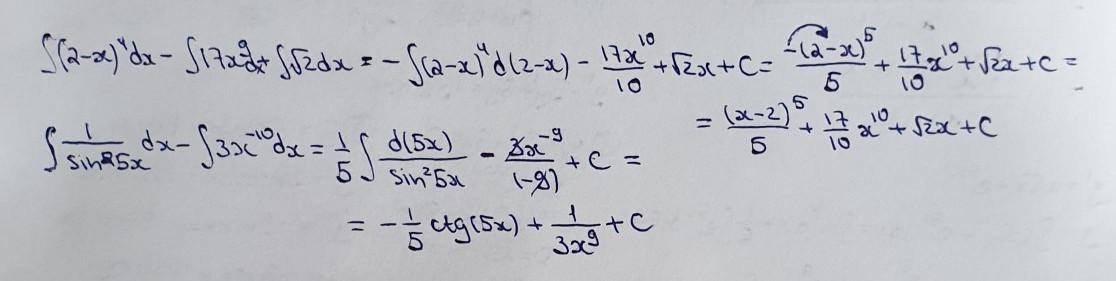 ∫(2-x)⁴dx - ∫17x⁹dx + ∫√2dx = - ∫(2-x)⁴d(2-x) - 17x¹⁰/10 + √2x + C = -(2-x)⁵/5 + 17/10 x¹⁰ + √2x + C =
= (x-2)⁵/5 + 17/10 x¹⁰ + √2x + C
∫ 1/sin²5x dx - ∫3x⁻¹⁰dx = 1/5 ∫ d(5x)/sin²5x - 3x⁻⁹/(-9) + C =
= - 1/5 ctg(5x) + 1/3x⁹ + C